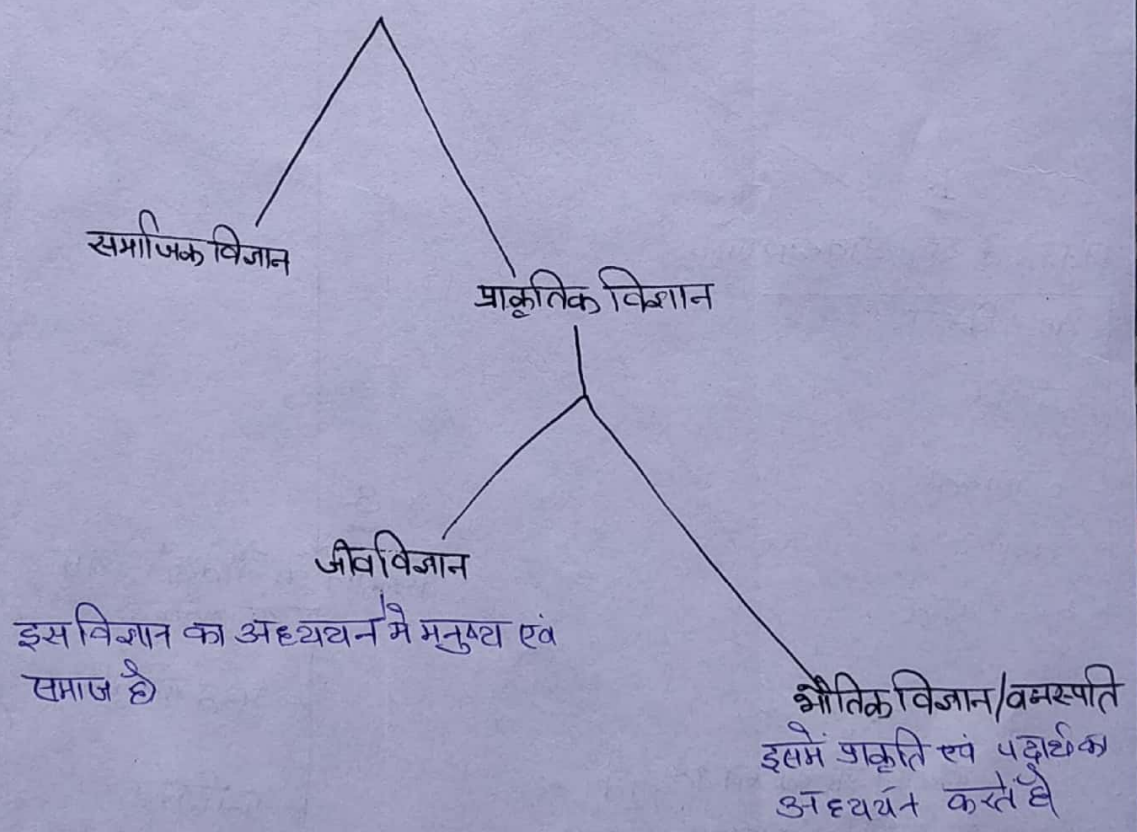 समाजिक विज्ञान
प्राकृतिक विज्ञान
जीवविज्ञान
इस विज्ञान का अध्ययन में मनुष्य एवं
समाज है
भौतिक विज्ञान/वनस्पति
इसमें प्राकृति एवं पदार्थ का
अध्ययन करते है